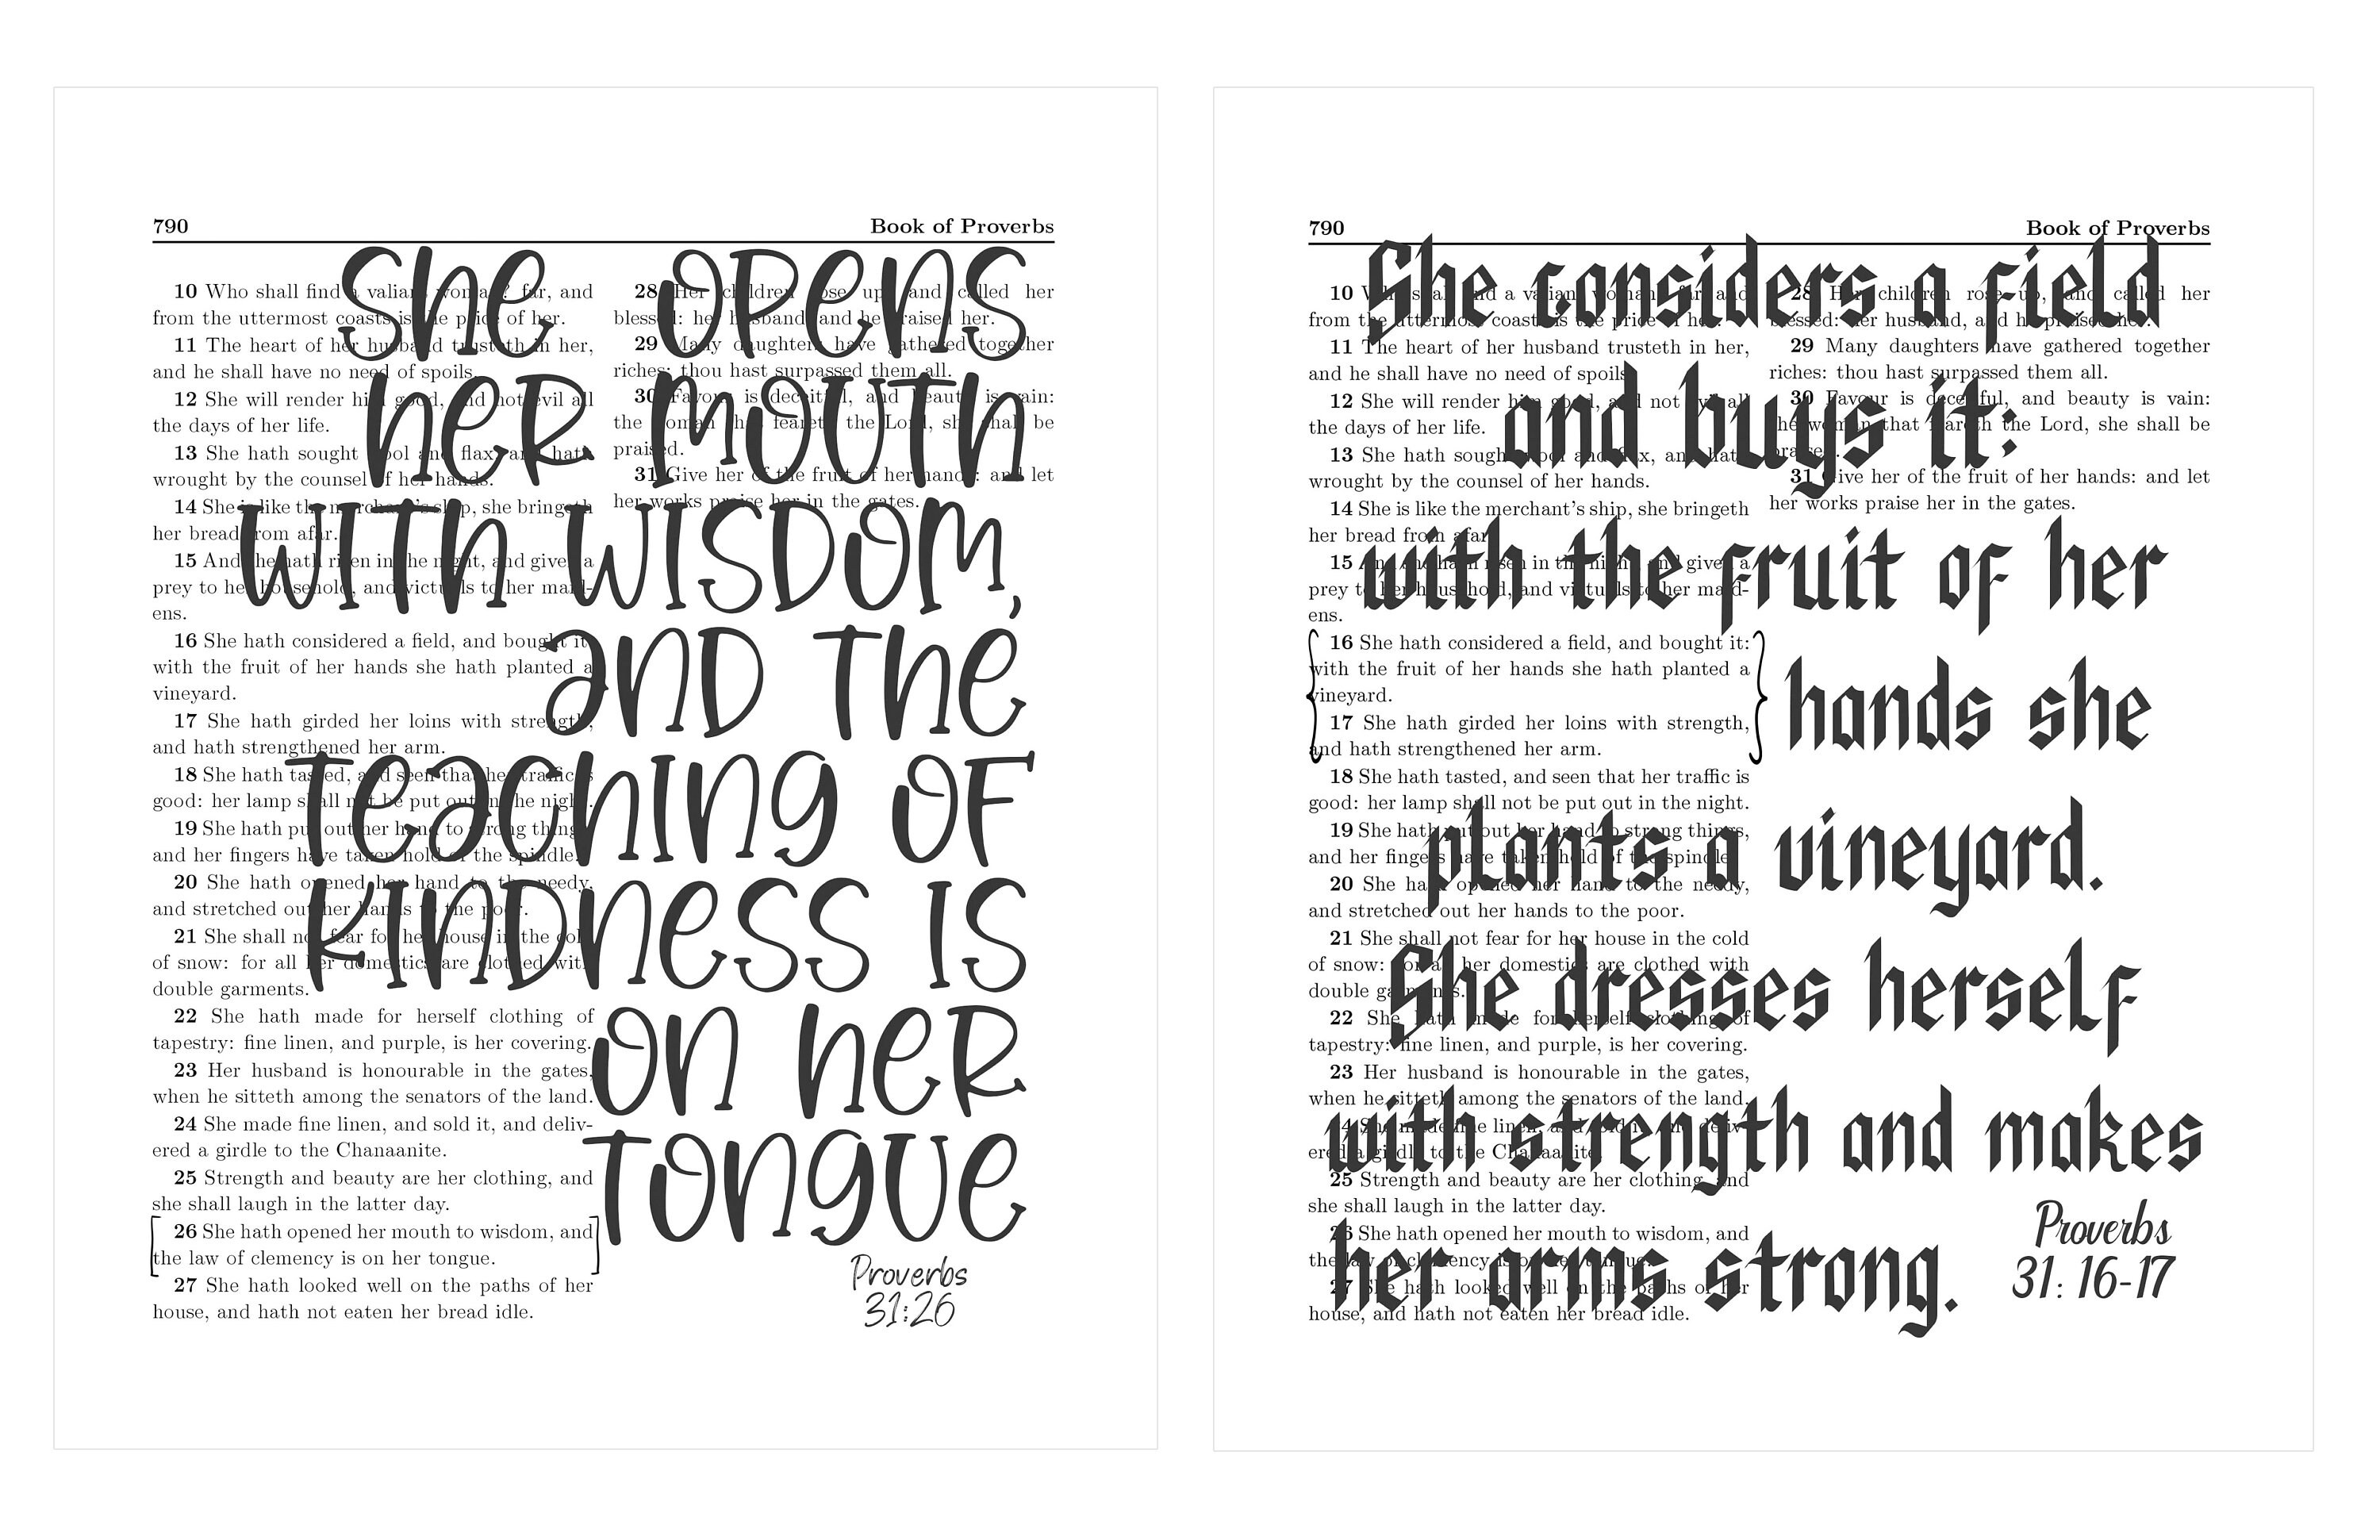 790 Book of Proverbs
10 Who shall find a valiant woman? far, and
from the uttermost coasts is the price of her.
11 The heart of her husband trusteth in her,
and he shall have no need of spoils.
12 She will render him good, and not evil all
the days of her life.
13 She hath sought wool and flax, and hath
wrought by the counsel of her hands.
14 She is like the merchant's ship, she bringeth
her bread from afar.
15 And she hath risen in the night, and given a
prey to her household, and victuals to her maid-
ens.
16 She hath considered a field, and bought it:
with the fruit of her hands she hath planted a
vineyard.
17 She hath girded her loins with strength,
and hath strengthened her arm.
18 She hath tasted, and seen that her traffic is
good: her lamp shall not be put out in the night.
19 She hath put out her hand to strong things,
and her fingers have taken hold of the spindle.
20 She hath opened her hand to the needy,
and stretched out her hands to the poor.
21 She shall not fear for her house in the cold
of snow: for all her domestics are clothed with
double garments.
22 She hath made for herself clothing of
tapestry: fine linen, and purple, is her covering.
23 Her husband is honourable in the gates,
when he sitteth among the senators of the land.
24 She made fine linen, and sold it, and deliv-
ered a girdle to the Chanaanite.
25 Strength and beauty are her clothing, and
she shall laugh in the latter day.
[26 She hath opened her mouth to wisdom, and
the law of clemency is on her tongue.]
27 She hath looked well on the paths of her
house, and hath not eaten her bread idle.
28 Her children rose up, and called her
blessed: her husband, and he praised her.
29 Many daughters have gathered together
riches: thou hast surpassed them all.
30 Favour is deceitful, and beauty is vain:
the woman that feareth the Lord, she shall be
praised.
31 Give her of the fruit of her hands: and let
her works praise her in the gates.
She opens
her mouth
with wisdom,
and the
teaching of
kindness is
on her
tongue
Proverbs
31:26
790 Book of Proverbs
10 Who shall find a valiant woman? far, and
from the uttermost coasts is the price of her.
11 The heart of her husband trusteth in her,
and he shall have no need of spoils.
12 She will render him good, and not evil all
the days of her life.
13 She hath sought wool and flax, and hath
wrought by the counsel of her hands.
14 She is like the merchant's ship, she bringeth
her bread from afar.
15 And she hath risen in the night, and given a
prey to her household, and victuals to her maid-
ens.
{16 She hath considered a field, and bought it:
with the fruit of her hands she hath planted a
vineyard.
17 She hath girded her loins with strength,
and hath strengthened her arm.}
18 She hath tasted, and seen that her traffic is
good: her lamp shall not be put out in the night.
19 She hath put out her hand to strong things,
and her fingers have taken hold of the spindle.
20 She hath opened her hand to the needy,
and stretched out her hands to the poor.
21 She shall not fear for her house in the cold
of snow: for all her domestics are clothed with
double garments.
22 She hath made for herself clothing of
tapestry: fine linen, and purple, is her covering.
23 Her husband is honourable in the gates,
when he sitteth among the senators of the land.
24 She made fine linen, and sold it, and deliv-
ered a girdle to the Chanaanite.
25 Strength and beauty are her clothing, and
she shall laugh in the latter day.
26 She hath opened her mouth to wisdom, and
the law of clemency is on her tongue.
27 She hath looked well on the paths of her
house, and hath not eaten her bread idle.
28 Her children rose up, and called her
blessed: her husband, and he praised her.
29 Many daughters have gathered together
riches: thou hast surpassed them all.
30 Favour is deceitful, and beauty is vain:
the woman that feareth the Lord, she shall be
praised.
31 Give her of the fruit of her hands: and let
her works praise her in the gates.
She considers a field
and buys it:
with the fruit of her
hands she
plants a vineyard.
She dresses herself
with strength and makes
her arms strong.
Proverbs
31: 16-17